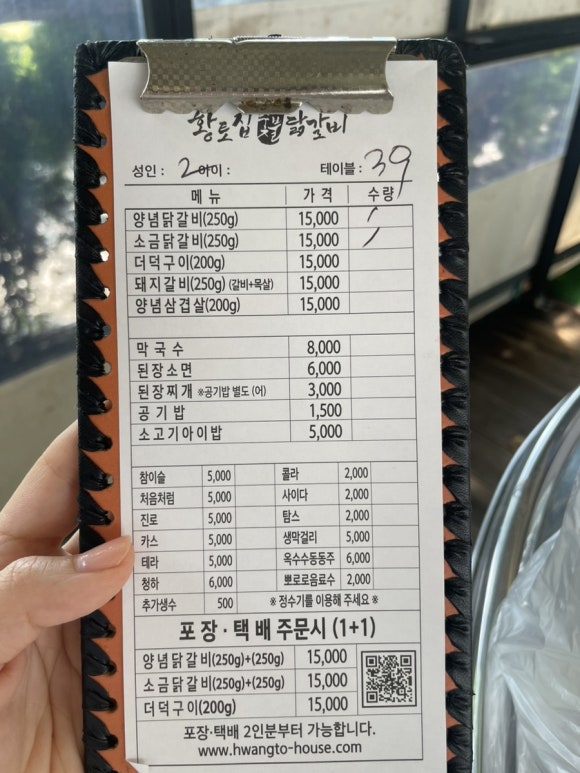 황토집 숯불 닭갈비
성인 : 2 아이 : 테이블 : 39
메뉴 가격 수량
양념닭갈비(250g) 15,000 /
소금닭갈비(250g) 15,000 /
더덕구이(200g) 15,000
돼지갈비(250g) (갈비+목살) 15,000
양념삼겹살(200g) 15,000
막국수 8,000
된장소면 6,000
된장찌개 ※공기밥 별도 (어) 3,000
공기밥 1,500
소고기아이밥 5,000
참이슬 5,000 콜라 2,000
처음처럼 5,000 사이다 2,000
진로 5,000 탐스 2,000
카스 5,000 생막걸리 5,000
테라 5,000 옥수수동동주 6,000
청하 6,000 뽀로로음료수 2,000
추가생수 500 ※ 정수기를 이용해 주세요 ※
포장·택배 주문시 (1+1)
양념닭갈비(250g)+(250g) 15,000
소금닭갈비(250g)+(250g) 15,000
더덕구이(200g) 15,000
포장·택배 2인분부터 가능합니다.
www.hwangto-house.com